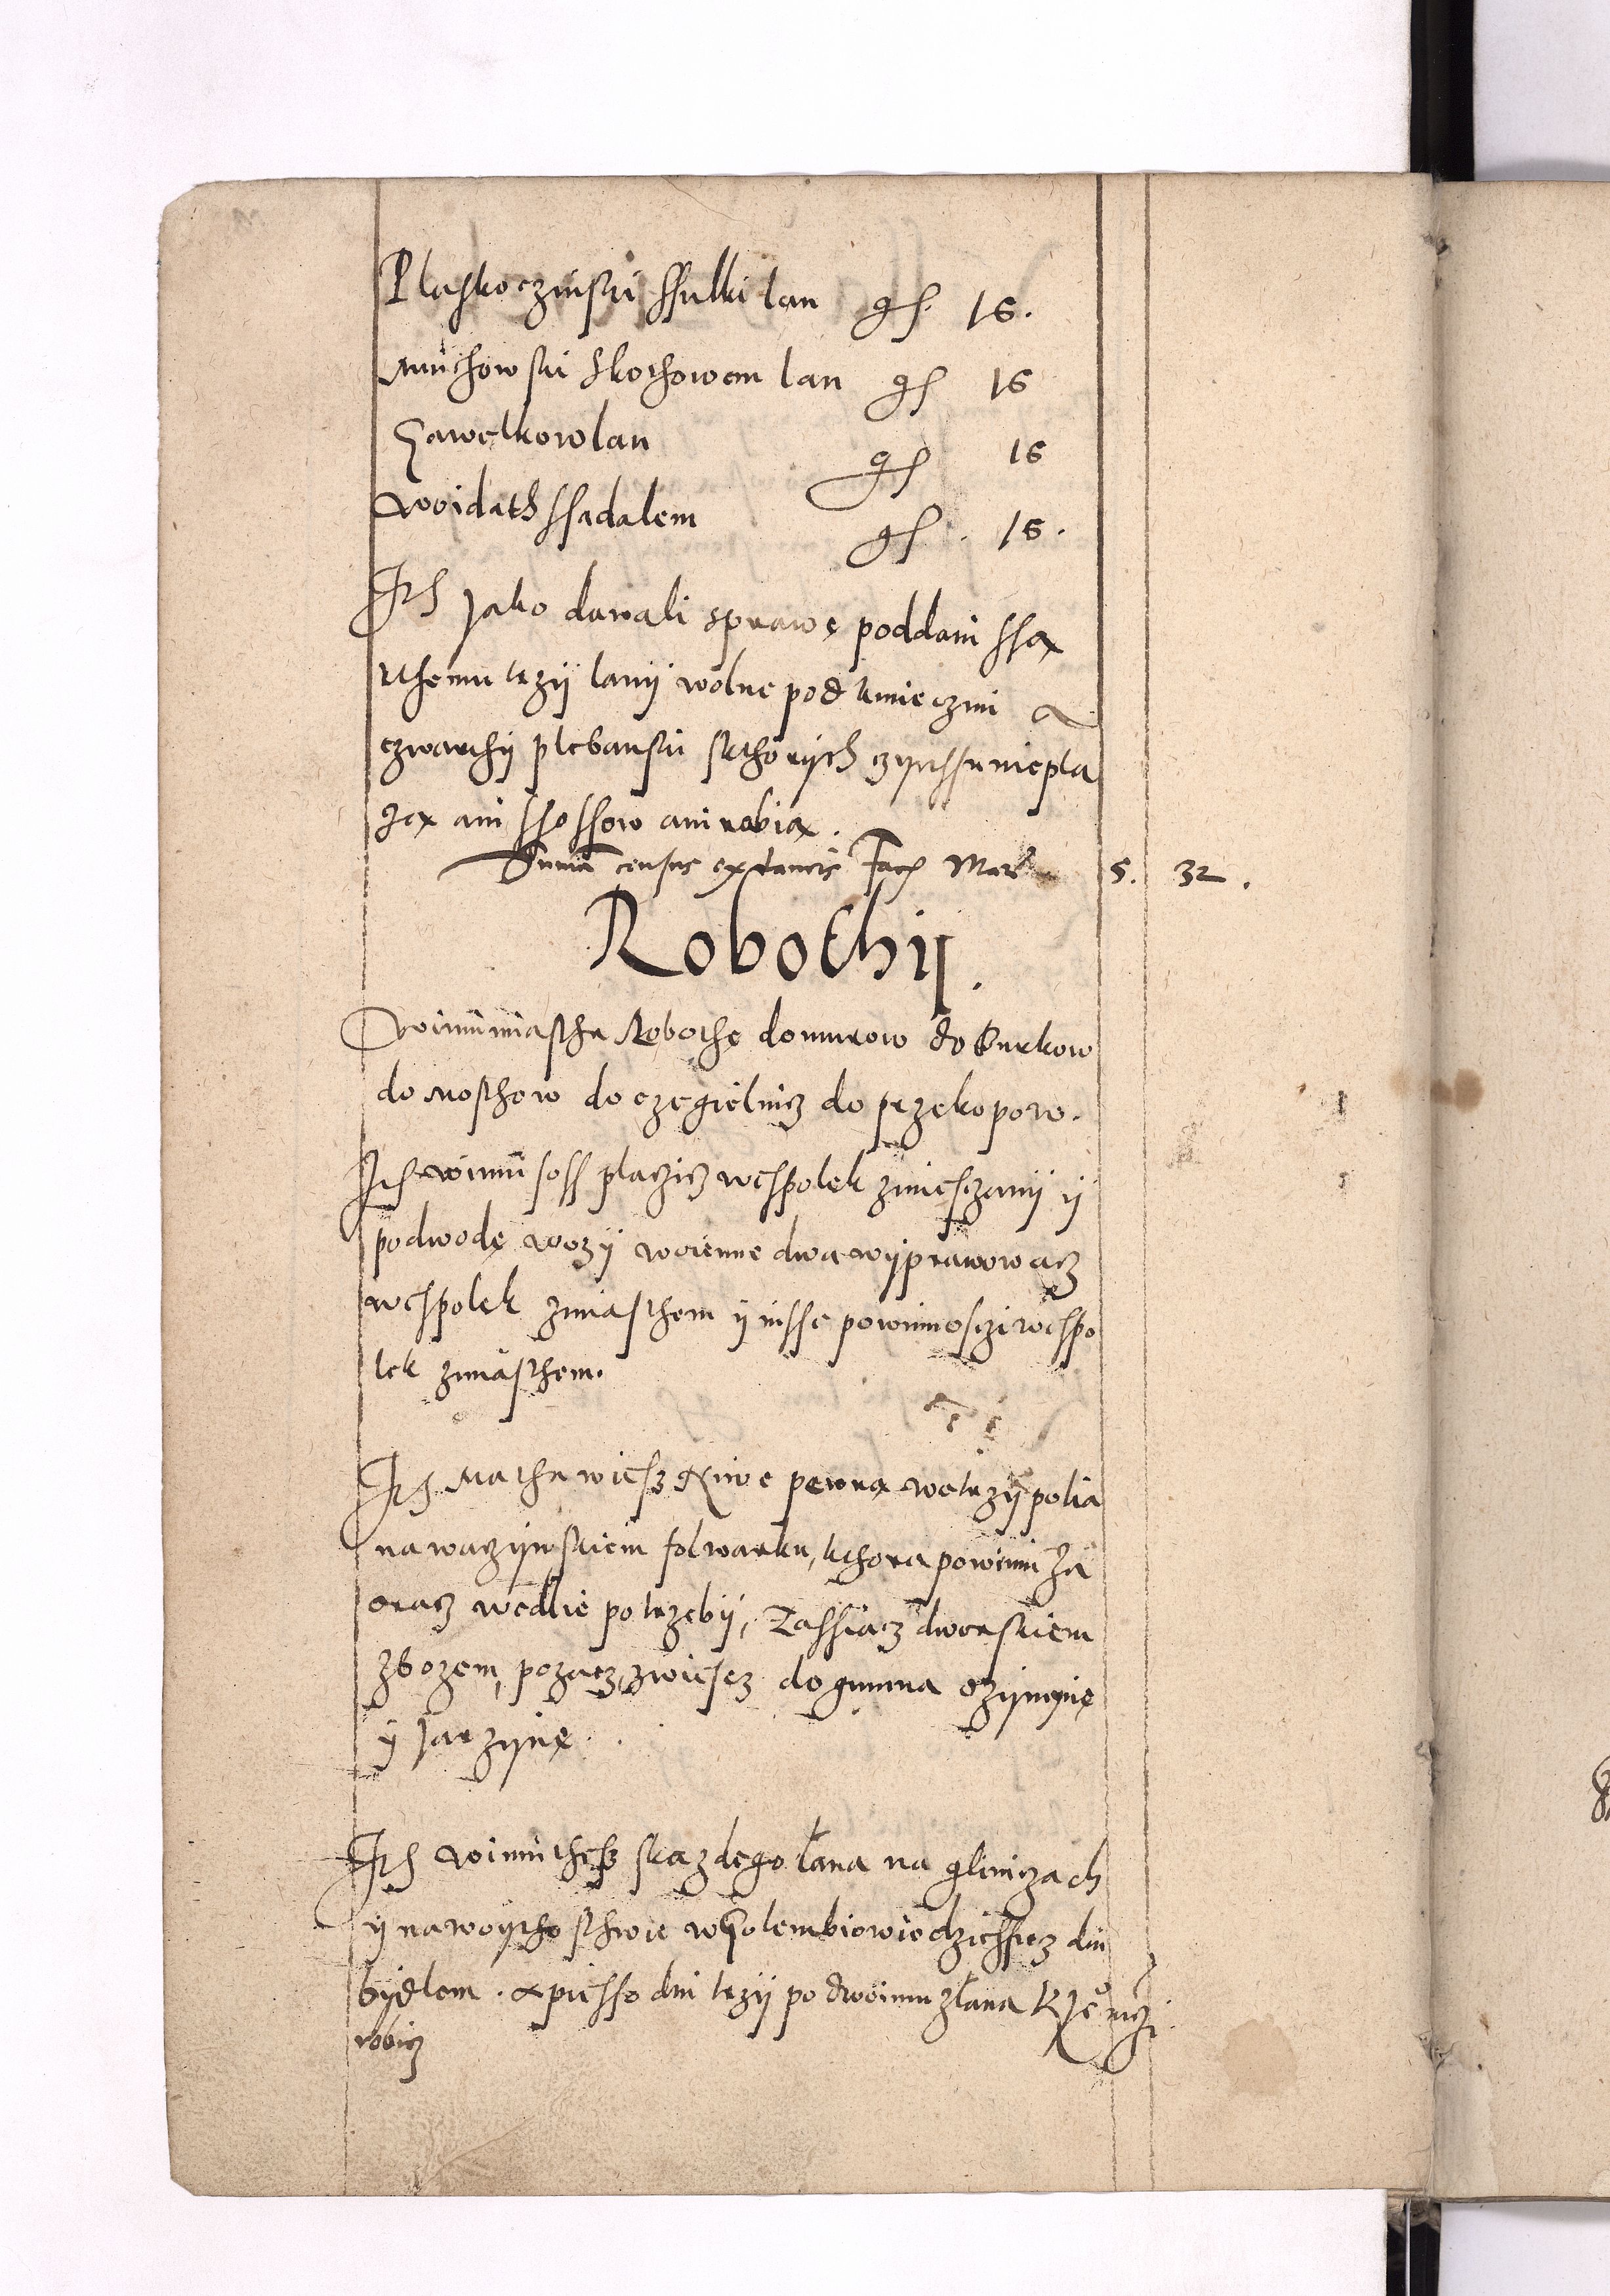 Plaskoczinski ssulki lan gs. 16.
Muchowski Skochowem lan gs 16
Gawelkow lan gs 16
Woidath ssadalem gs. 16.
Its Jako dawali sprawę poddani ssą
kthemu trzÿ lanÿ wolne pod kmieczmi a
czwarthÿ plebanski skthorÿch czÿnssu niepla
czą ani ssossow ani robią.
Suma census extancis Facit Mar 5. 32.
Robothÿ.
Winni miastha Robothę do murow do burkow
do mosthow do czegielnicz do przekopow.
Its winni soss placzicz wespolek zmiesczanÿ ÿ
podwodę wozÿ woienne dwa wÿprawowacz
wespolek zmiasthem ÿ insse powinnosczi wespo
lek zmiasthem.
Its Matha wiesz Niwę pewną wetrzÿ polia
na waczÿnskiem folwarku, kthorą powinni za
oracz wedlie potrzebÿ, Zassiacz dworskiem
zbozem, pozacz, zwiescz do gumna oziminę
ÿ Jarzÿnę.
Its winni thesz skazdego łana na gliniczach
ÿ na woÿthosthwie wGolembiowie dzien
bÿdlem. a piesso dni trzÿ po dwoinu złana
robicz